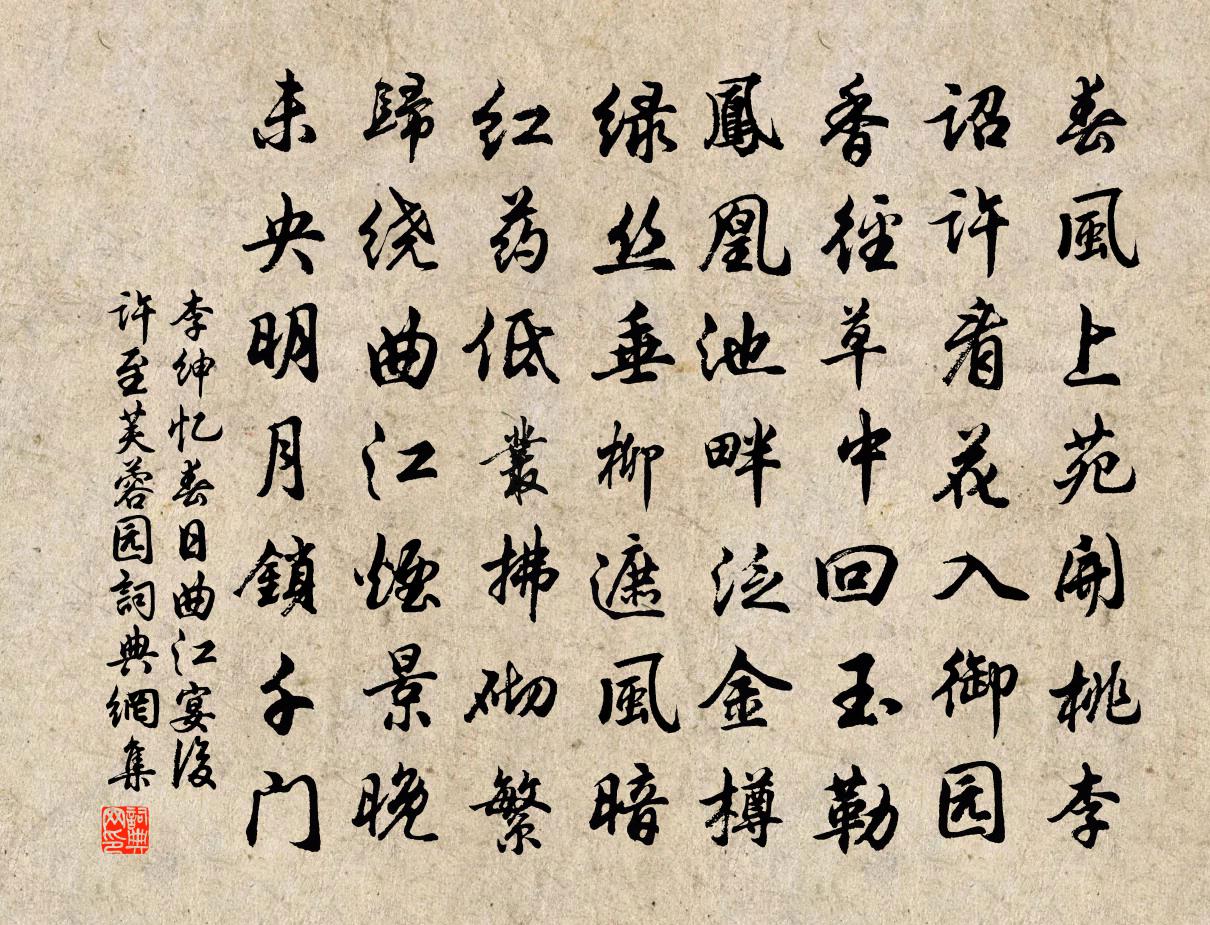 春風上苑開桃李
詔許看花入御园
香徑草中回玉勒
鳳凰池畔泛金樽
绿丝垂柳遮風暗
红药低叢拂砌繁
歸绕曲江煙景晚
未央明月鎖千门
李绅忆春日曲江宴後
许至芙蓉园詞典網集
詞典
网印